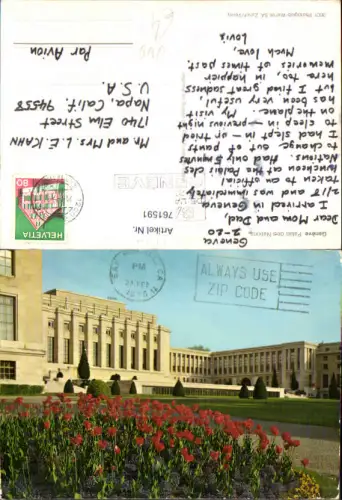 3021 Photoglob-Wehrli SA, Zürich (Suisse)
Genève Palais des Nations
Geneva
2-20
Dear Mom and Dad,
I arrived in Geneva
2/18 and was immediately
taken to an official
luncheon at the Palais des
Nations. Had only 5 minutes
to change out of pants
I had slept in - or tried
to sleep in - previous night
on the plane. My visit
has been very useful,
but I find great sadness
here, too, in happier
memories of times past.
Much love,
Lovis
Par Avion
Mr and Mrs. L. E. KAHN
1740 Elm Street
Napa, Calif. 94558
U.S.A.
HELVETIA
80
Artikel Nr.: 761591
PM
ALWAYS USE
ZIP CODE